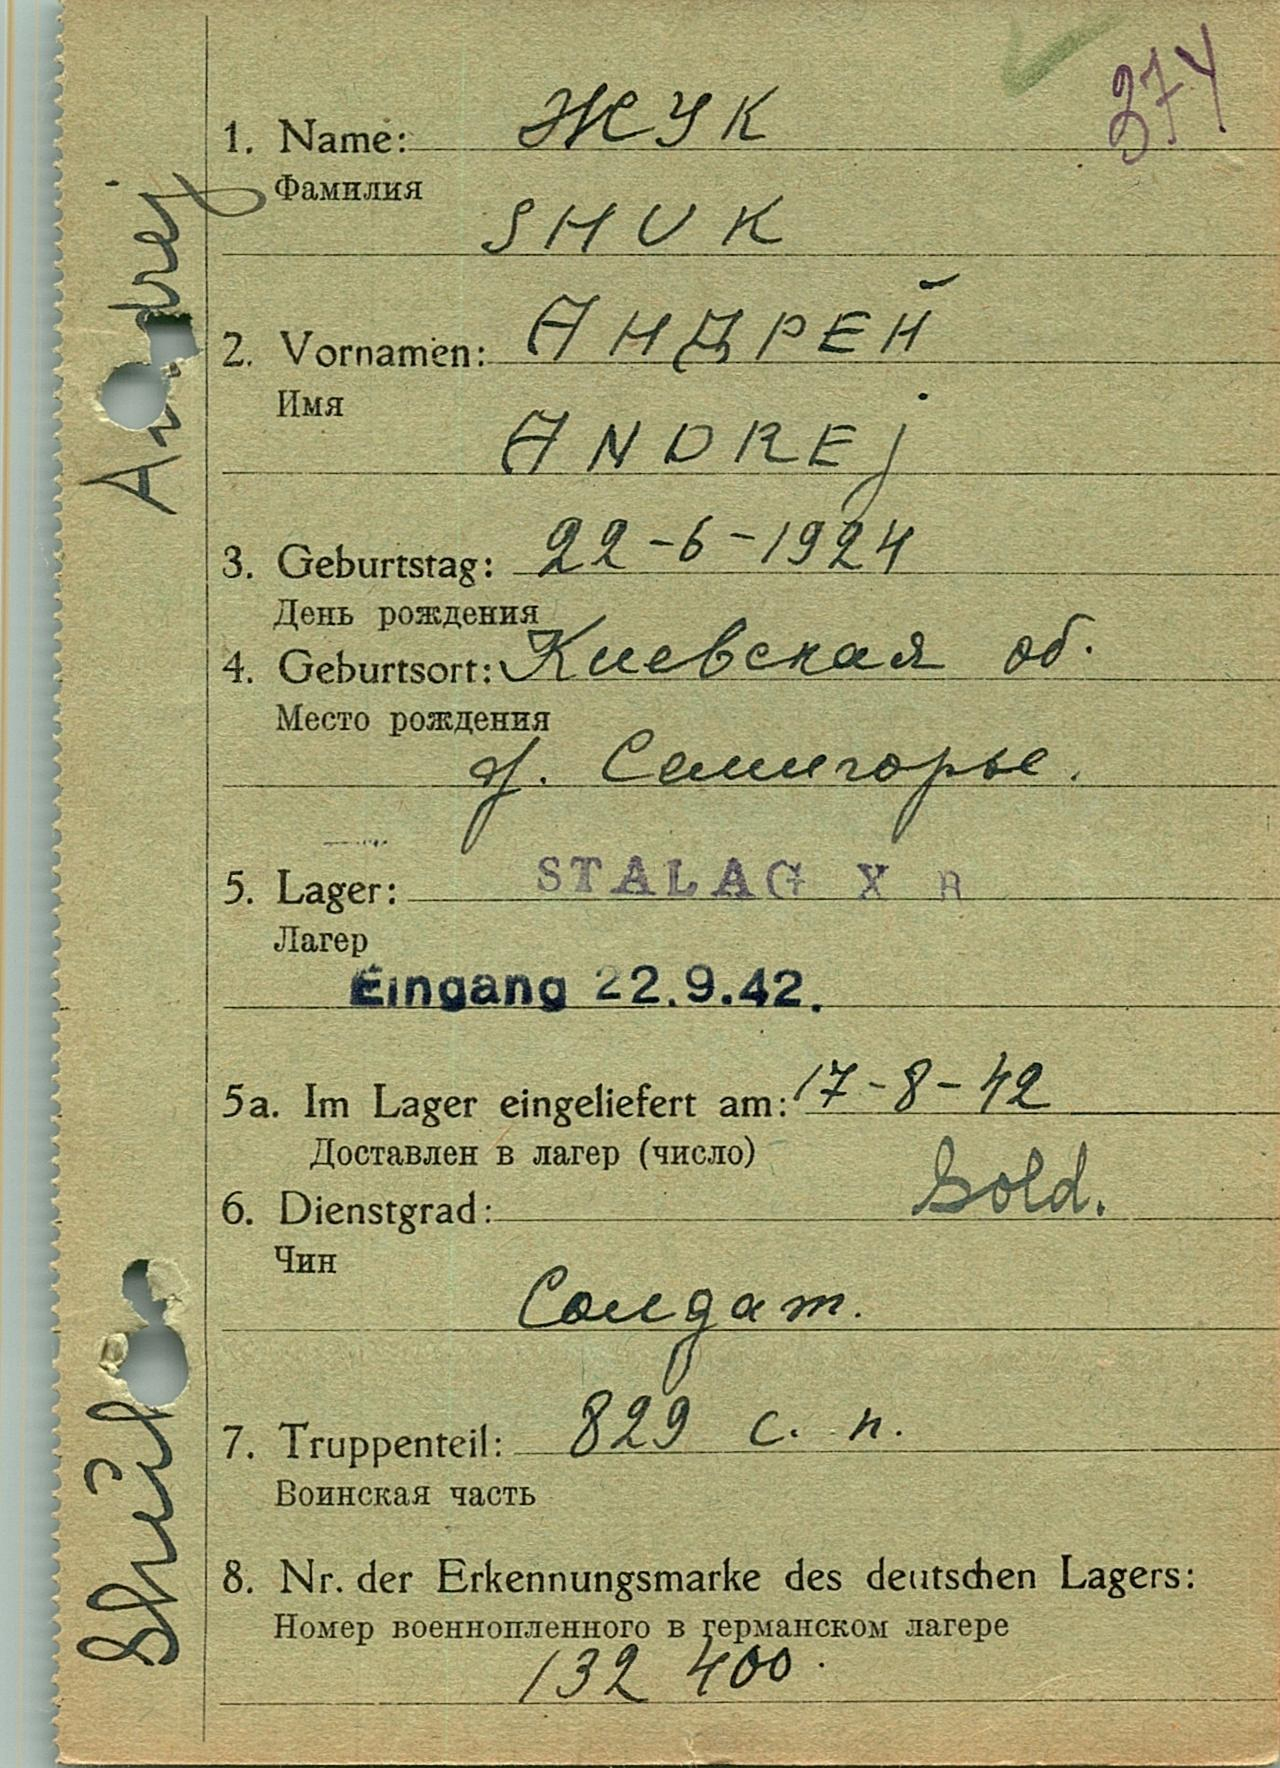 374
1. Name: ЖУК
Фамилия
SHUK
2. Vornamen: АНДРЕЙ
Имя
ANDREj
3. Geburtstag: 22-6-1924
День рождения
4. Geburtsort: Киевская об.
Место рождения
д. Семигорье.
5. Lager: STALAG X B
Лагер
Eingang 22.9.42.
5a. Im Lager eingeliefert am: 17-8-42
Доставлен в лагер (число)
6. Dienstgrad: Sold.
Чин
Солдат.
7. Truppenteil: 829 с. п.
Воинская часть
8. Nr. der Erkennungsmarke des deutschen Lagers:
Номер военнопленного в германском лагере
132 400.
Shuk Andrej